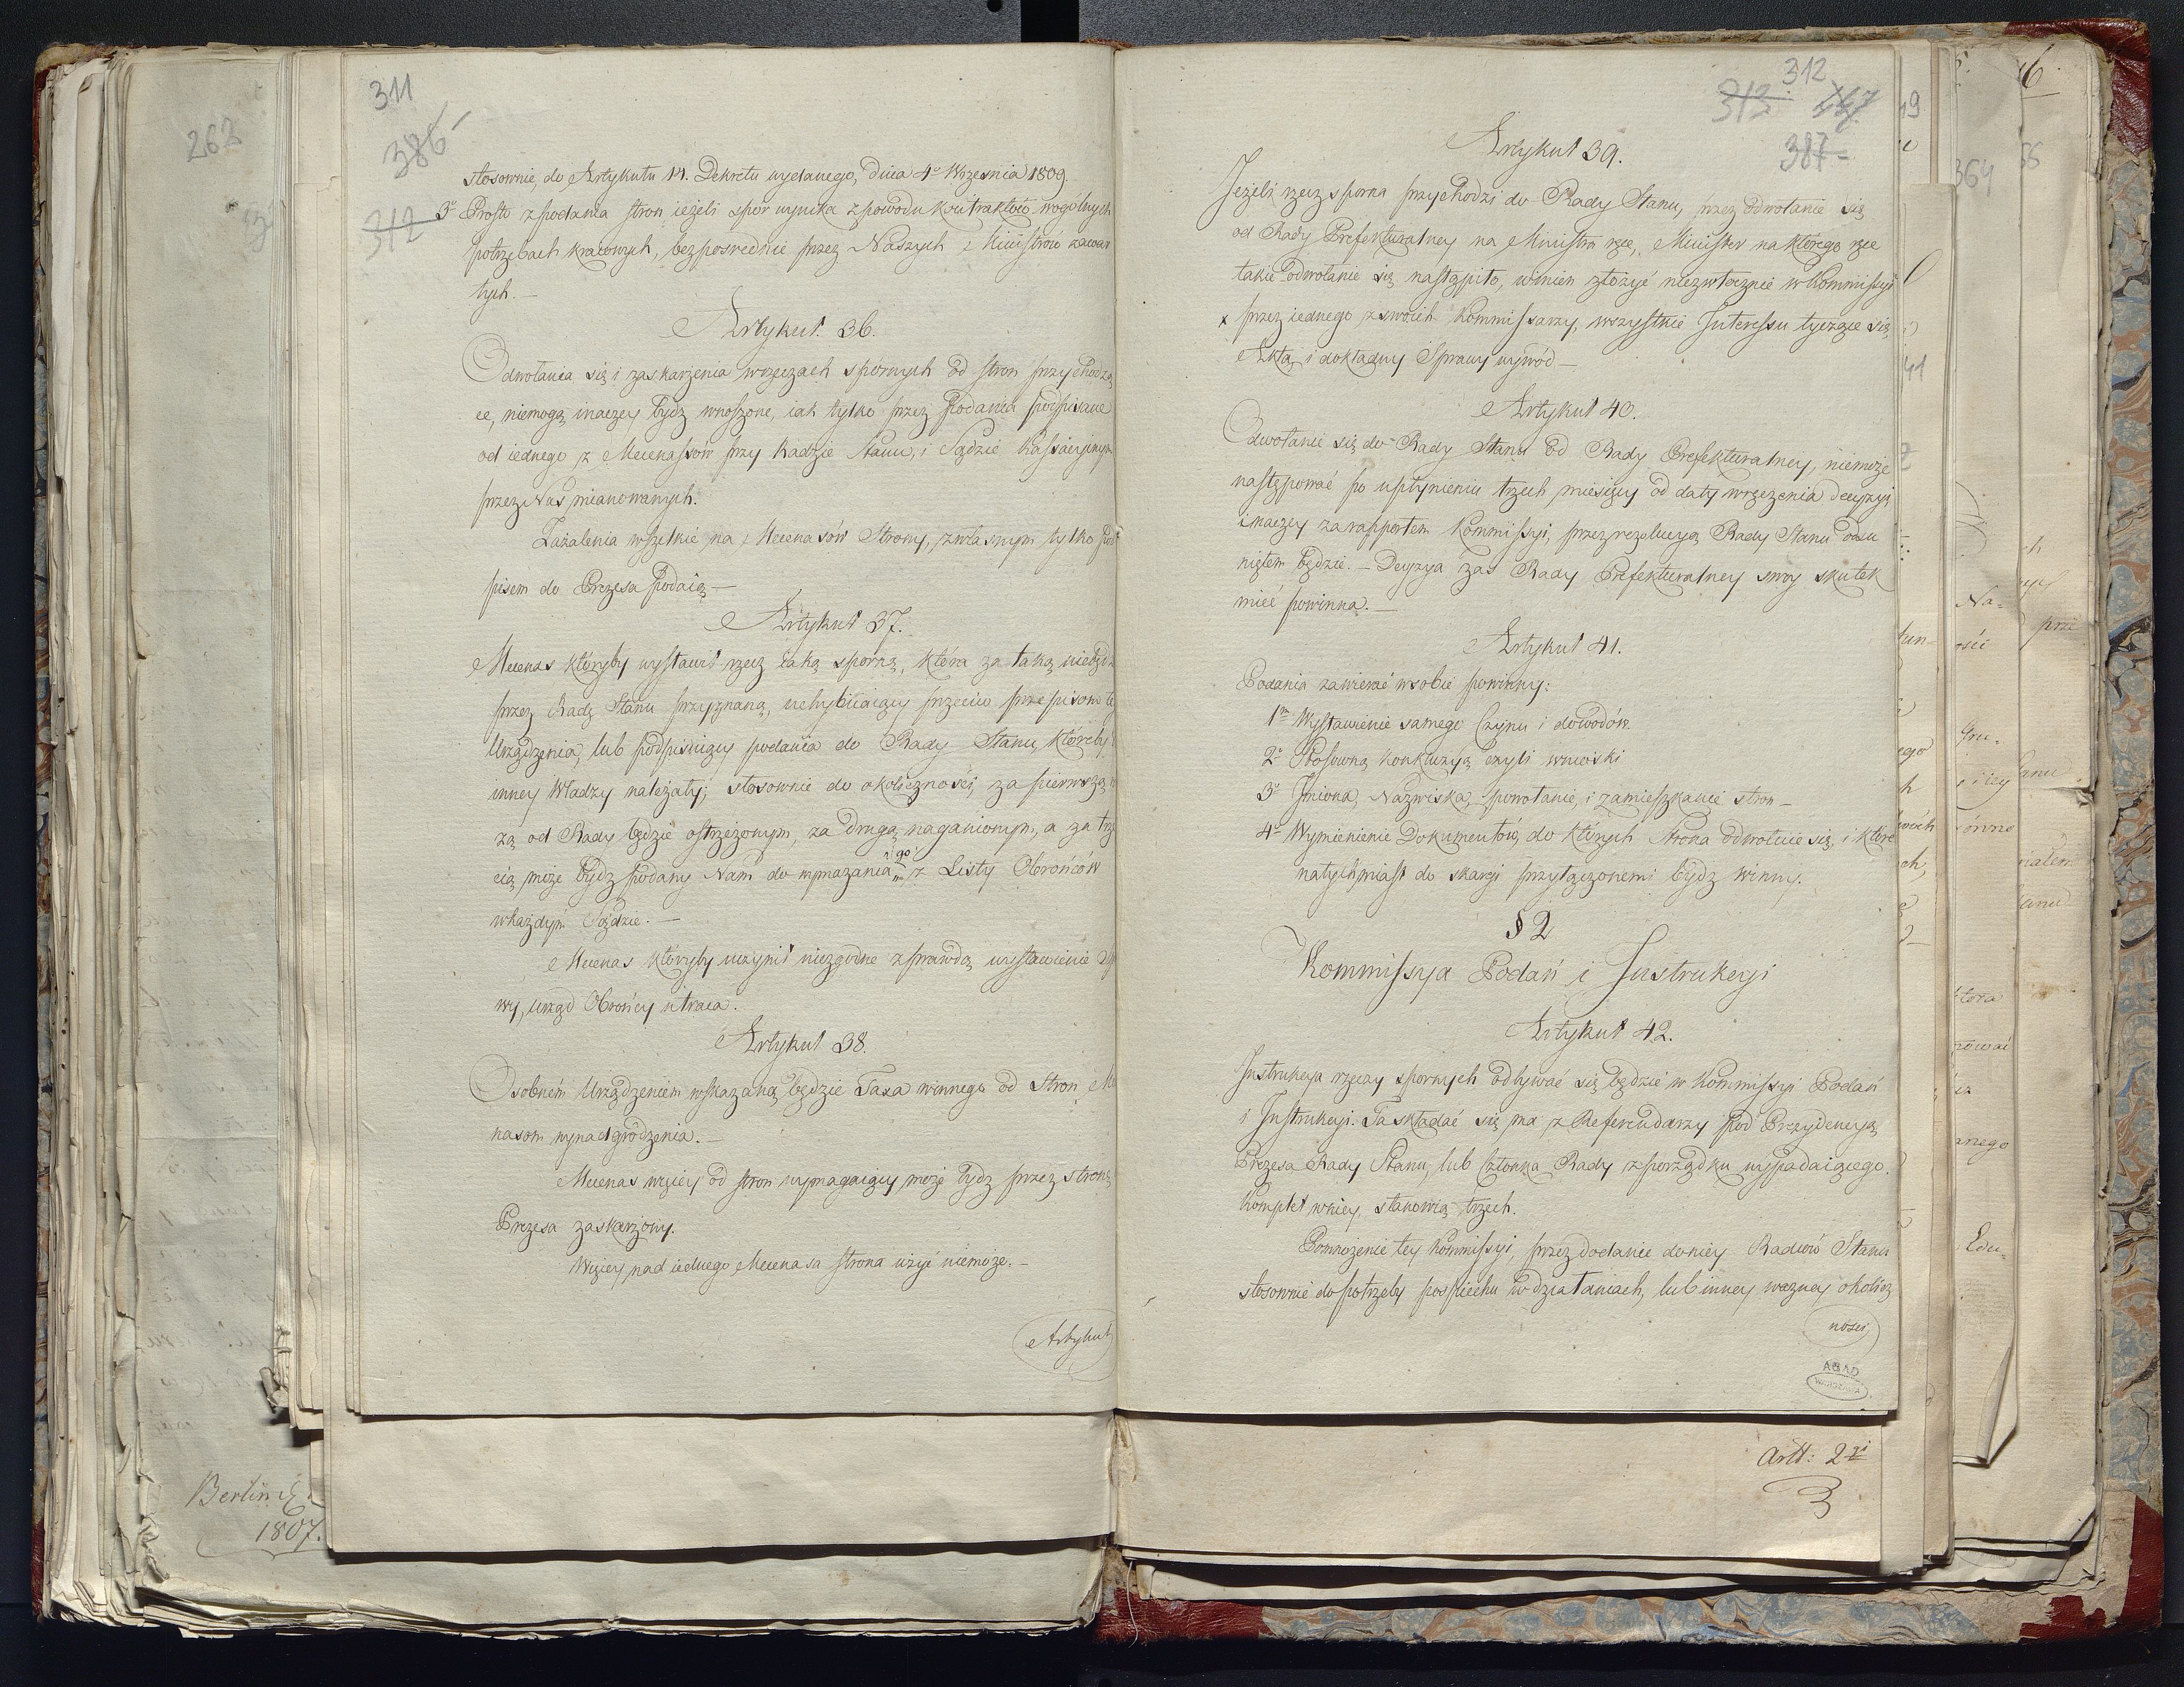 311
386
312
stosownie, do Artykułu 14. Dekretu wydanego, dnia 4º Września 1809.
3º Prosto z podania stron, ieżeli spor wynika z powodu kontraktów wogólnych
potrzebach kraiowych, bezpośrednie przez Naszych Ministrów zawar
tych. —
Artykuł 36.
Odwołania się i zaskarzenia wrzeczach spornych od stron przychodzą
ce, niemogą inaczey bydz wnoszone, iak tylko przez podania podpisane
od iednego z Mecenassów przy Radzie Stanu, i Sądzie Kassacyinym
przez Nas mianowanych.
Zażalenia wszelkie na Mecenasów Strony, zwłasnym tylko pod
pisem do Prezesa podaią —
Artykuł 37.
Mecenas któryby wystawił rzecz iaką sporną, która za taką niebędzie
przez Radę Stanu przyznaną, uchybiaiący przeciw przepisom te
Urządzenia, lub podpisuiący podania do Rady Stanu, któreby
inney Władzy należały; stosownie do okoliczności, za pierwszą
zą od Rady będzie ostrzeżonym, za drugą naganionym, a za trze
cią może bydz podany Nam do wymazania go z Listy Obrońców
wkażdym Sądzie. —
Mecenas któryby uczynił niezgodne z prawdą wystawienie
wy, urząd Obrońcy utraca.
Artykuł 38.
Osobnem Urządzeniem wskazaną będzie Taxa winnego od Stron Me
nasom wynadgrodzenia. —
Mecenas więcey od stron wymagaiący może bydz przez stronę
Prezesa zaskarżony.
Więcey nad iednego Mecenasa strona użyć niemoże. —
Artykuł
312
313
387
Artykuł 39.
Jeżeli rzecz sporna przychodzi do Rady Stanu, przez odwołanie się
od Rady Prefekturalney na Ministra rzec, Minister na którego rzec
takie odwołanie się nastąpiło, winien złożyć niezwłocznie w Kommissyi
x przez iednego z swoich Kommissarzy, wszystkie Interessu tyczące się
Akta, i dokładny Sprawy wywód —
Artykuł 40.
Odwołanie się do Rady Stanu od Rady Prefekturalney, niemoże
następować po upłynieniu trzech miesięcy od daty wręczenia decyzyi
inaczey za rapportem Kommissyi, przez rezolucyą Rady Stanu odsu
niętem będzie. — Decyzya zaś Rady Prefekturalney swoy skutek
mieć powinna. —
Artykuł 41.
Podania zawierać wsobie powinny:
1º Wystawienie samego Czynu i dowodów
2º Stosowną konkluzyą czyli wnioski
3º Imiona, Nazwiska, powołanie, i zamieszkanie stron —
4º Wymienienie Dokumentów, do których Strona odwołuie się, i które
natychmiast do skargi przyłączonemi bydz winny.
§ 2
Kommissya Podań i Instrukcyi
Artykuł 42.
Instrukcya rzeczy spornych odbywać się będzie w Kommissyi Podań
i Instrukcyi. Ta składać się ma z Referendarzy pod Prezydencyą
Prezesa Rady Stanu, lub Członka Rady z porządku wypadaiącego.
Komplet wniey, stanowią trzech.
Pomnożenie tey Kommissyi, przez dodanie doniey Radców Stanu
stosownie do potrzeby pospiechu w działaniach, lub inney ważney okolicz
ności
AGAD
WARSZAWA
Artt: 2
262
Berlin
1807.
364